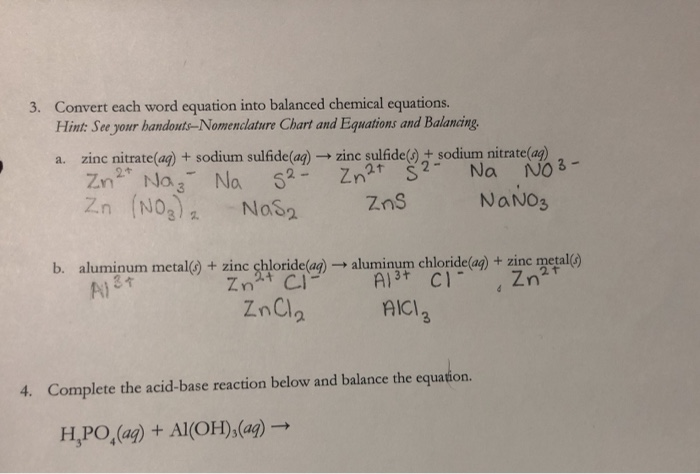 3. Convert each word equation into balanced chemical equations.
Hint: See your handouts–Nomenclature Chart and Equations and Balancing.
a. zinc nitrate(aq) + sodium sulfide(aq) → zinc sulfide(s) + sodium nitrate(aq)
Zn²⁺ Na₃⁻ Na S²⁻ Zn²⁺ S²⁻ Na NO³⁻
Zn (NO₃)₂ NaS₂ ZnS NaNO₃
b. aluminum metal(s) + zinc chloride(aq) → aluminum chloride(aq) + zinc metal(s)
Al³⁺ Zn²⁺ Cl⁻ Al³⁺ Cl⁻ Zn²⁺
ZnCl₂ AlCl₃
4. Complete the acid-base reaction below and balance the equation.
H₃PO₄(aq) + Al(OH)₃(aq) →